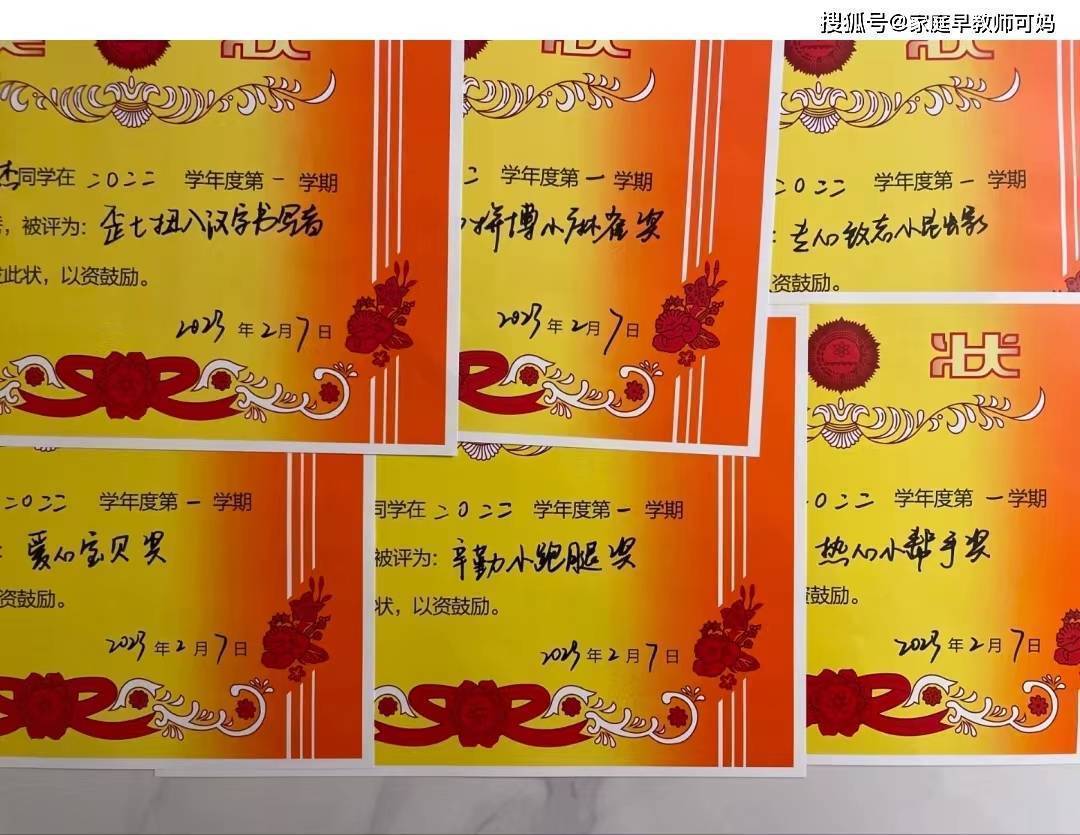 搜狐号@家庭早教师可妈
状
杰同学在 二〇二二 学年度第一学期
，被评为：歪七扭八汉字书写者
此状，以资鼓励。
2023年2月7日
状
二 学年度第一学期
拼搏小麻雀奖
2023年2月7日
状
二〇二二 学年度第一学期
：专心致志小昆虫
资鼓励。
二〇二二 学年度第一学期
：爱心宝贝奖
资鼓励。
2023年2月7日
同学在 二〇二二 学年度第一学期
被评为：辛勤小跑腿奖
状，以资鼓励。
2023年2月7日
状
〇二二 学年度第一学期
热心小帮手奖
资鼓励。
2023年2月7日